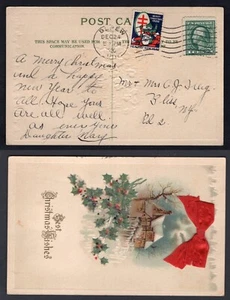 POST CARD
THIS SPACE MAY BE USED FOR
COMMUNICATION
DEC 24
A Merry Christmas
and a happy
New Year to
all. Hope you
are all well
as ever your
Daughter Mary
Mr + Mrs
R 2
Best
Christmas Wishes